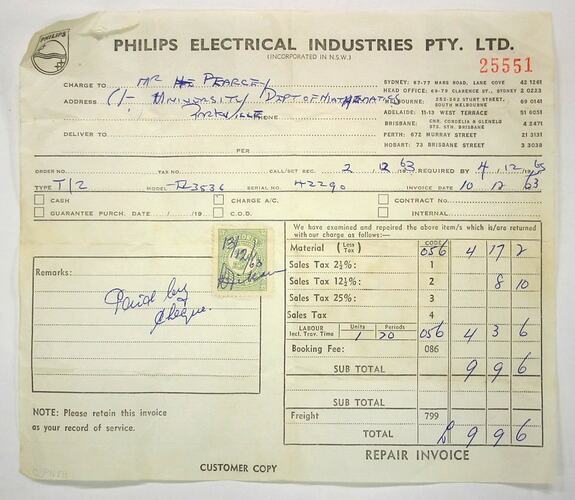 PHILIPS
PHILIPS ELECTRICAL INDUSTRIES PTY. LTD.
(INCORPORATED IN N.S.W.)
25551
CHARGE TO MR PEARCEY
ADDRESS C/- UNIVERSITY DEPT OF MATHEMATICS
PARKVILLE PHONE
DELIVER TO
PER
SYDNEY: 67-77 MARS ROAD, LANE COVE 42 1261
HEAD OFFICE: 69-79 CLARENCE ST., SYDNEY 2 0223
MELBOURNE: 252-262 STURT STREET, SOUTH MELBOURNE 69 0141
ADELAIDE: 11-13 WEST TERRACE 51 6051
BRISBANE: CNR. CORDELIA & GLENELG STS. STH. BRISBANE 4 2471
PERTH: 672 MURRAY STREET 21 3131
HOBART: 73 BRISBANE STREET 3 3038
ORDER NO. TAX NO. CALL/SET REC. 2 / 12 /1963 REQUIRED BY 4 / 12 /1963
TYPE T/2 MODEL 3536 SERIAL NO. 42290 INVOICE DATE 10 12 63
CASH CHARGE A/C. CONTRACT NO.
GUARANTEE PURCH. DATE / /19 C.O.D. INTERNAL
13/12/63
Remarks:
Paid by
Cheque.
We have examined and repaired the above item/s which is/are returned
with our charge as follows:—
Material (Less Tax) CODE 056 4 17 2
Sales Tax 2½%: 1
Sales Tax 12½%: 2 8 10
Sales Tax 25%: 3
Sales Tax 4
LABOUR Incl. Trav. Time Units 1 Periods 20 056 4 3 6
Booking Fee: 086
SUB TOTAL 9 9 6
SUB TOTAL
Freight 799
TOTAL £ 9 9 6
NOTE: Please retain this invoice
as your record of service.
REPAIR INVOICE
CUSTOMER COPY